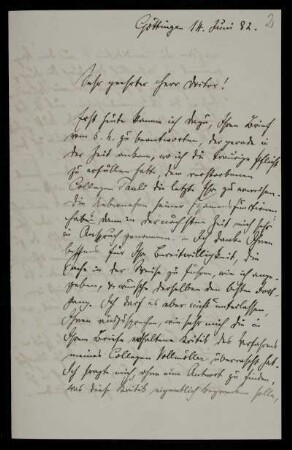 2
Göttingen 14. Juni 82.
Sehr geehrter Herr Doctor!
Erst heute komme ich dazu, Ihren Brief
vom 6. h. zu beantworten, der gerade in
der Zeit ankam, wo ich die traurige Pflicht
zu erfüllen hatte, dem verstorbenen
Collegen Pauli die letzte Ehre zu erweisen.
Die Uebernahme seiner Functionen
haben dann in der nächsten Zeit mich sehr
in Anspruch genommen. Ich danke Ihnen
bestens für Ihre Bereitwilligkeit, die
Sache in der Weise zu führen, wie ich ange-
geben, & wünsche derselben den besten Fort-
gang. Ich darf es aber nicht unterlassen,
Ihnen auszusprechen, wie sehr mich die in
Ihrem Briefe enthaltene Kritik des Verfahrens
meines Collegen Vollmöller überrascht hat.
Ich fragte mich, ohne eine Antwort zu finden,
was diese Kritik eigentlich bezwecken solle,